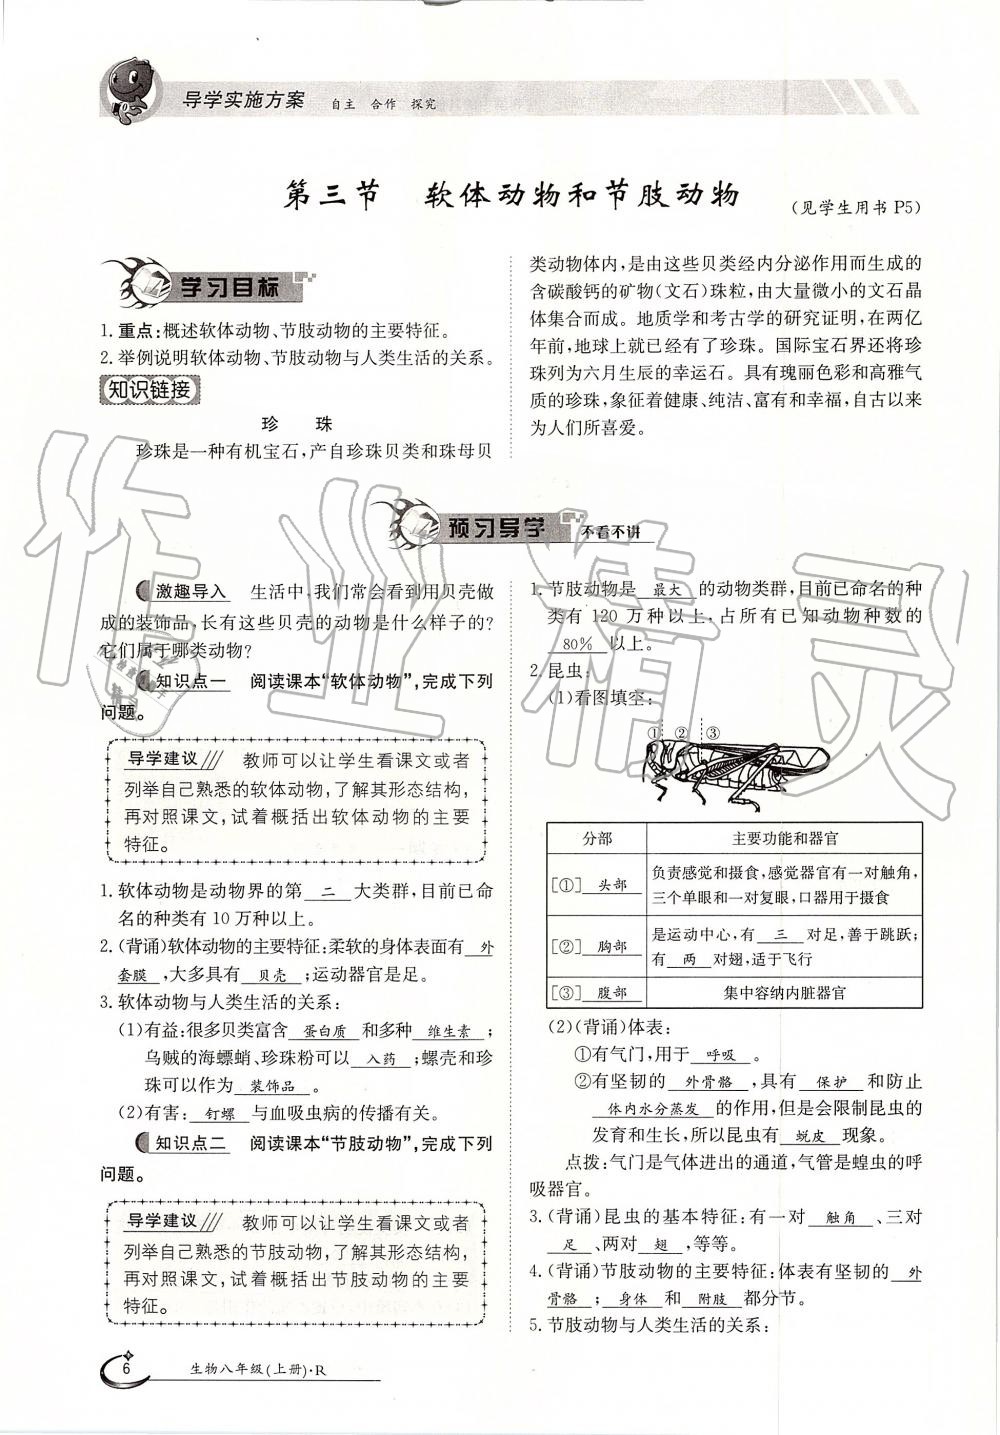 导学实施方案 自主 合作 探究
第三节 软体动物和节肢动物 (见学生用书 P5)
学习目标
1. 重点:概述软体动物、节肢动物的主要特征。
2. 举例说明软体动物、节肢动物与人类生活的关系。
知识链接
珍 珠
珍珠是一种有机宝石,产自珍珠贝类和珠母贝
类动物体内,是由这些贝类经内分泌作用而生成的
含碳酸钙的矿物(文石)珠粒,由大量微小的文石晶
体集合而成。地质学和考古学的研究证明,在两亿
年前,地球上就已经有了珍珠。国际宝石界还将珍
珠列为六月生辰的幸运石。具有瑰丽色彩和高雅气
质的珍珠,象征着健康、纯洁、富有和幸福,自古以来
为人们所喜爱。
预习导学 不看不讲
激趣导入 生活中,我们常会看到用贝壳做
成的装饰品,长有这些贝壳的动物是什么样子的?
它们属于哪类动物?
知识点一 阅读课本“软体动物”,完成下列
问题。
导学建议 教师可以让学生看课文或者
列举自己熟悉的软体动物,了解其形态结构,
再对照课文,试着概括出软体动物的主要
特征。
1. 软体动物是动物界的第 二 大类群,目前已命
名的种类有 10 万种以上。
2. (背诵)软体动物的主要特征:柔软的身体表面有 外
套膜 ,大多具有 贝壳 ;运动器官是足。
3. 软体动物与人类生活的关系:
(1)有益:很多贝类富含 蛋白质 和多种 维生素 ;
乌贼的海螵蛸、珍珠粉可以 入药 ;螺壳和珍
珠可以作为 装饰品 。
(2)有害: 钉螺 与血吸虫病的传播有关。
知识点二 阅读课本“节肢动物”,完成下列
问题。
导学建议 教师可以让学生看课文或者
列举自己熟悉的节肢动物,了解其形态结构,
再对照课文,试着概括出节肢动物的主要
特征。
1. 节肢动物是 最大 的动物类群,目前已命名的种
类有 120 万种以上,占所有已知动物种数的
80% 以上。
2. 昆虫:
(1)看图填空:
① ② ③
分部 主要功能和器官
[①] 头部 负责感觉和摄食,感觉器官有一对触角,
三个单眼和一对复眼,口器用于摄食
[②] 胸部 是运动中心,有 三 对足,善于跳跃;
有 两 对翅,适于飞行
[③] 腹部 集中容纳内脏器官
(2)(背诵)体表:
①有气门,用于 呼吸 。
②有坚韧的 外骨骼 ,具有 保护 和防止
体内水分蒸发 的作用,但是会限制昆虫的
发育和生长,所以昆虫有 蜕皮 现象。
点拨:气门是气体进出的通道,气管是蝗虫的呼
吸器官。
3. (背诵)昆虫的基本特征:有一对 触角 、三对
足 、两对 翅 ,等等。
4. (背诵)节肢动物的主要特征:体表有坚韧的 外
骨骼 ; 身体 和 附肢 都分节。
5. 节肢动物与人类生活的关系:
6 生物八年级(上册)·R
作业精灵